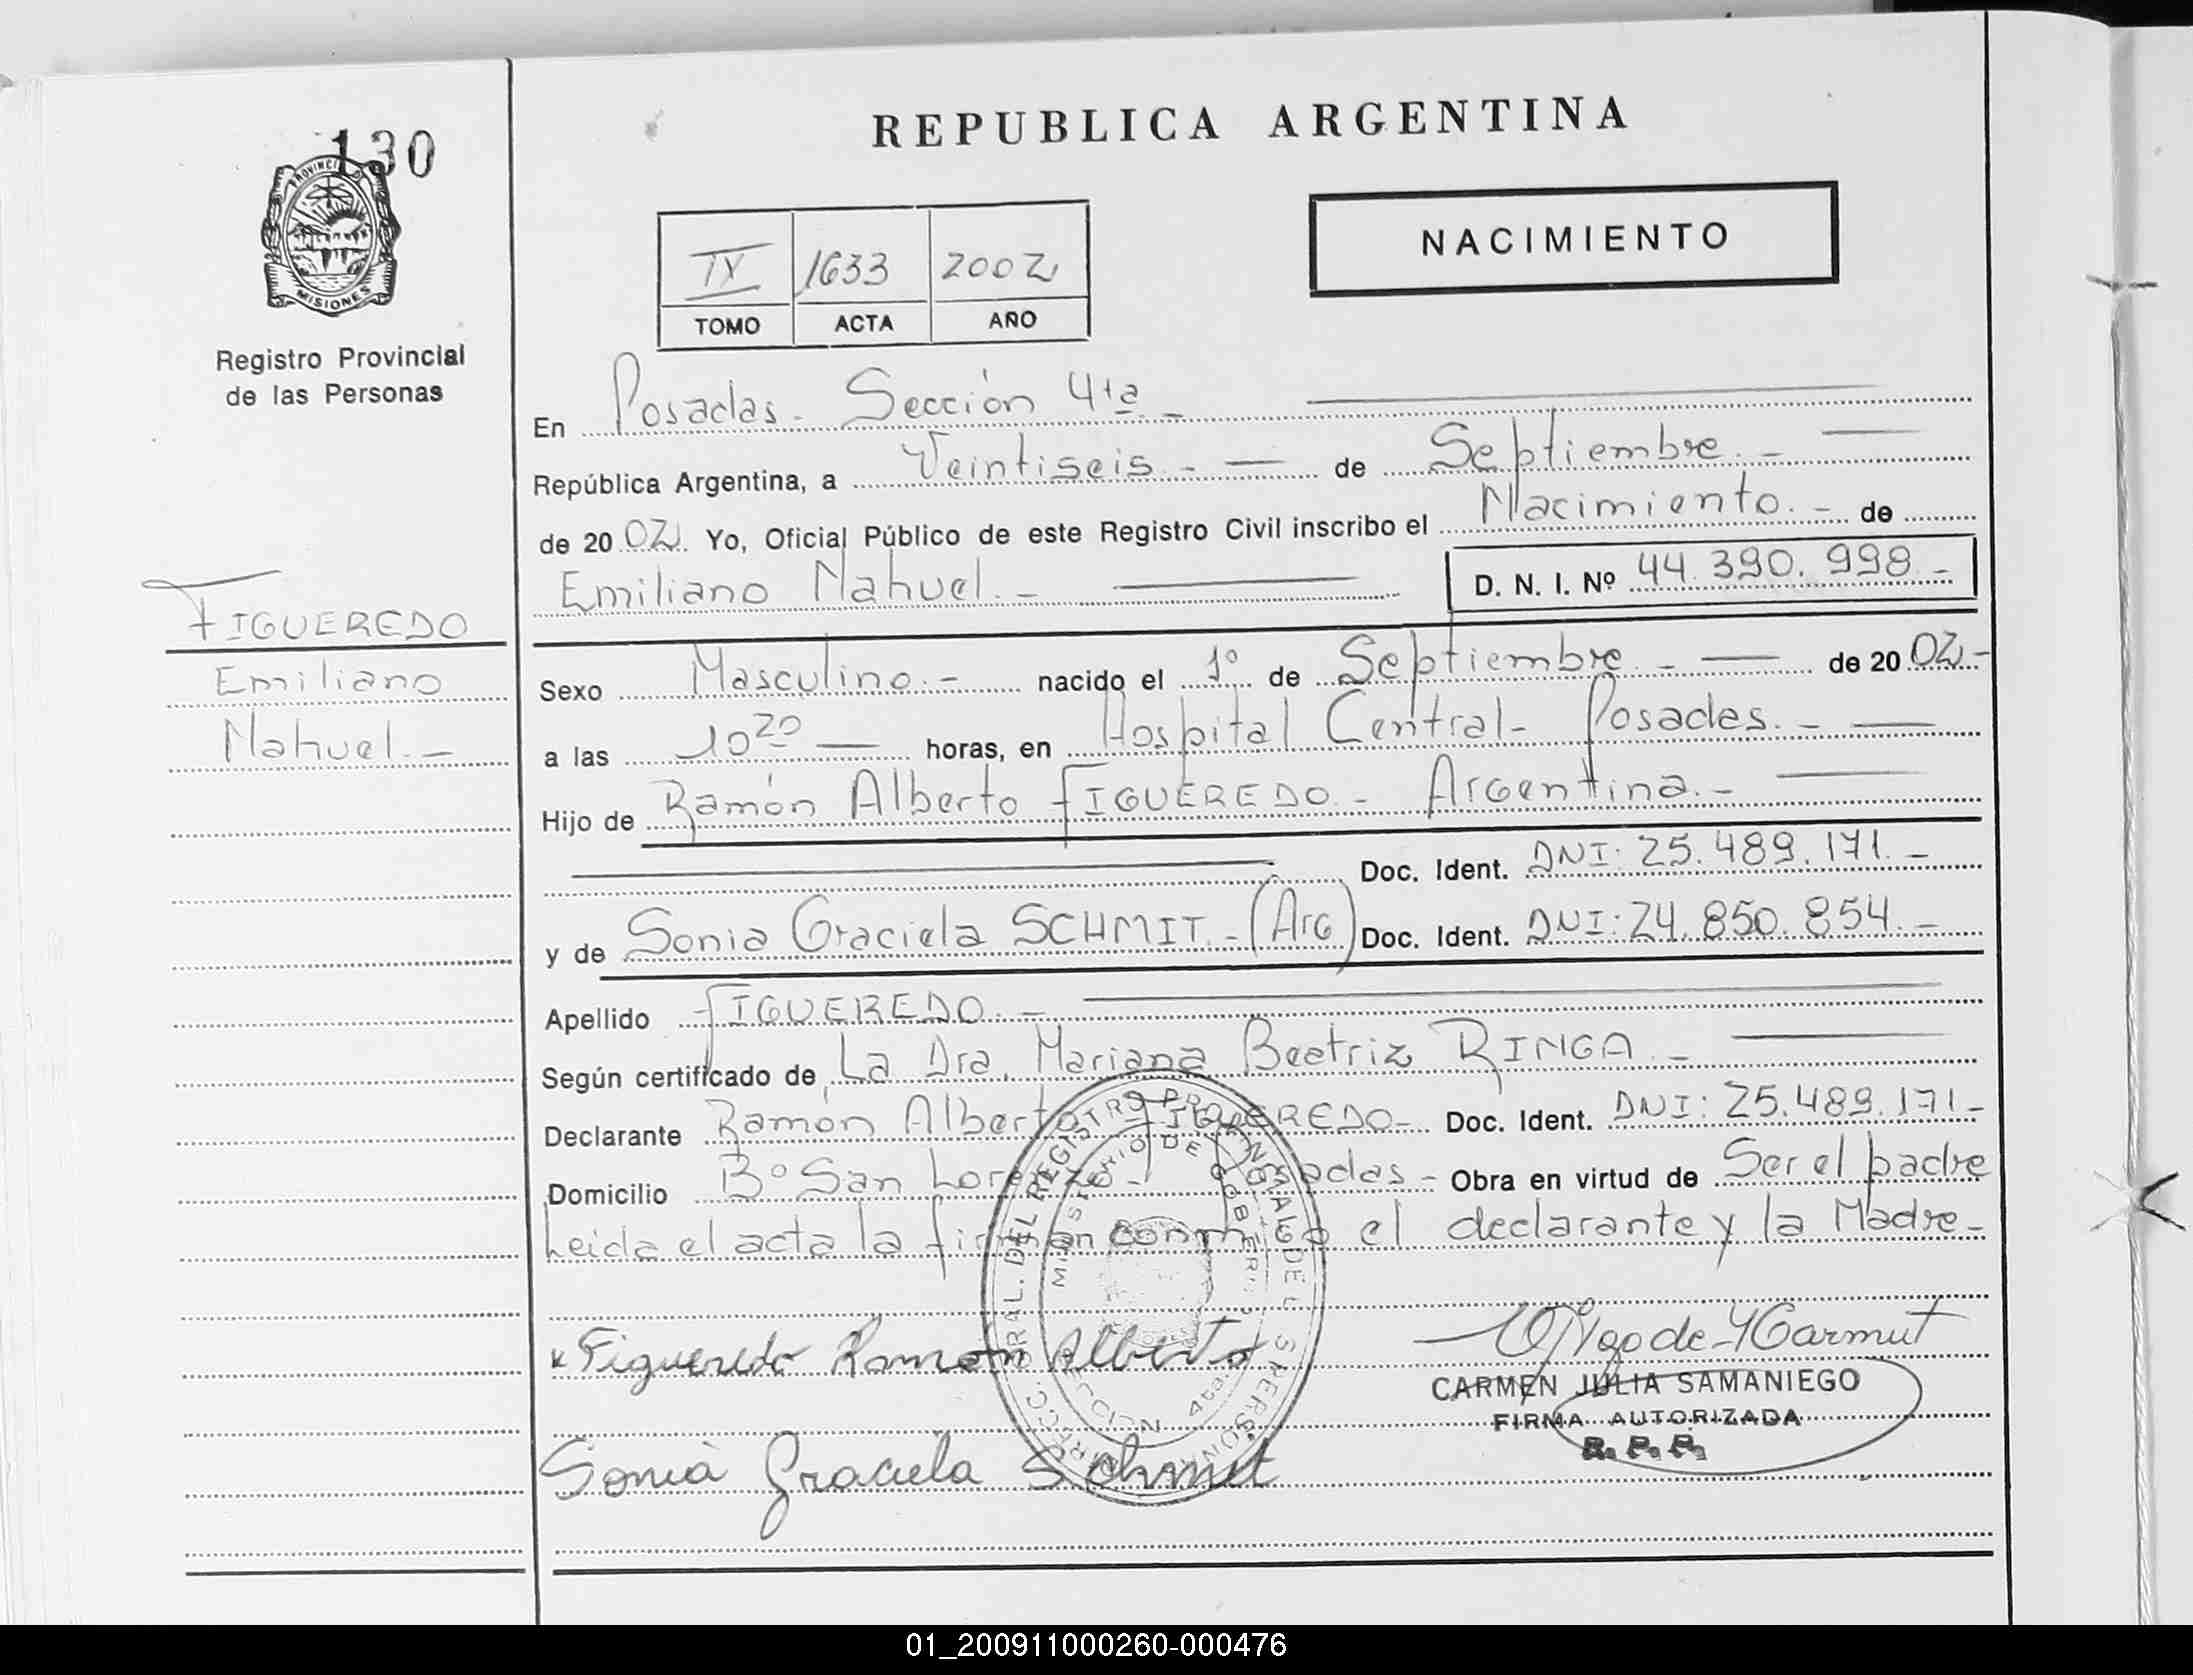 130
PROVINCIA D
MISIONES
Registro Provincial
de las Personas
REPUBLICA ARGENTINA
NACIMIENTO
IX 1633 2002
TOMO ACTA AÑO
En Posadas - Sección 4ta -
República Argentina, a Veintiseis - de Septiembre -
de 2002. Yo, Oficial Público de este Registro Civil inscribo el Nacimiento. - de
Emiliano Nahuel. - D. N. I. Nº 44.390.998 -
FIGUEREDO
Emiliano
Nahuel. -
Sexo Masculino. - nacido el 1º de Septiembre - de 2002 -
a las 10 20 horas, en Hospital Central - Posadas. -
Hijo de Ramón Alberto FIGUEREDO - Argentina. -
Doc. Ident. DNI: 25.489.171. -
y de Sonia Graciela SCHMIT - (Arg) Doc. Ident. DNI: 24.850.854. -
Apellido FIGUEREDO. -
Según certificado de La Dra. Mariana Beatriz RINGA. -
Declarante Ramón Alberto FIGUEREDO - Doc. Ident. DNI: 25.489.171 -
Domicilio Bº San Lorenzo - Posadas - Obra en virtud de Ser el padre
Leida el acta la firman conmigo el declarante y la Madre -
Figueredo Ramon Alberto
CARMEN JULIA SAMANIEGO
FIRMA AUTORIZADA
R. P. P.
Sonia Graciela Schmit
01_200911000260-000476